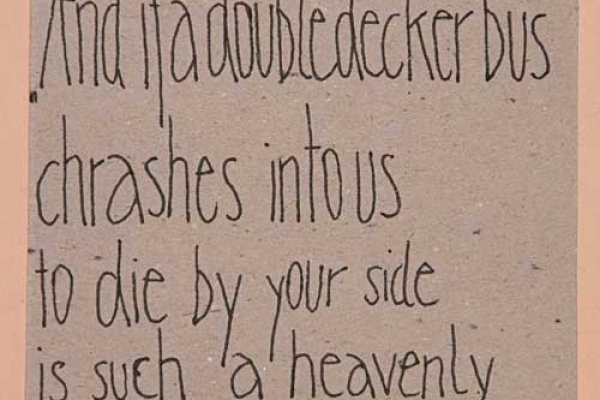 And if a doubledecker bus
chrashes into us
to die by your side
is such a heavenly